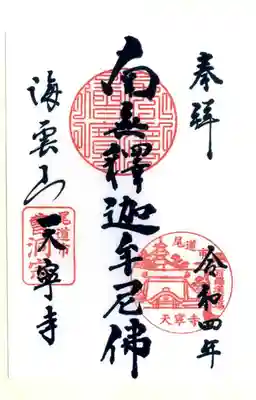 奉拝
令和四年
南無釋迦牟尼佛
海雲山
天寧寺
尾道市
天寧寺
尾道市